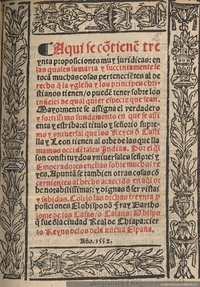 ¶ Aqui se cõtienẽ tre
ynta proposiciones muy juridicas: en
las quales sumaria y succintamente se
toca muchas cosas pertenecietes al de
recho q̃ la yglesia y los principes chri
stianos tienen / o puedẽ tener sobre los
infieles de qual quier especie que sean.
Mayormente se assigna el verdadero
y fortissimo fundamento en que se assi
enta y estriba: el titulo y señorio supre
mo y vniuersal que los Reyes d̓ Casti
lla y Leon tienen al orbe de las que lla
mamos occidẽtales Indias. Por el q̃l
son constituydos vniuersales señores y
Emperadores en ellas sobre muchos re
yes. Apuntã se tambien otras cosas cõ
cernientes al hecho acaecido en aq̃l or
be notabilissimas: y dignas d̓ ser vistas
y sabidas. Colijo las dichas treynta p̱
posiciones El obispo dõ Fray Bartho
lome de las Casas / o Casaus: Obispo
q̃ fue d̓la ciudad Real de Chiapa: cier
to Reyno delos dela nueua España,
Año. 1552